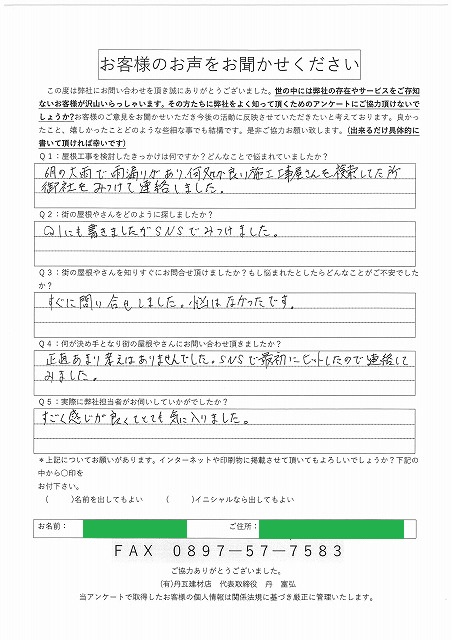 お客様のお声をお聞かせください
この度は弊社にお問い合わせを頂き誠にありがとうございました。世の中には弊社の存在やサービスをご存知
ないお客様が沢山いらっしゃいます。その方たちに弊社をよく知って頂くためのアンケートにご協力頂けないで
しょうか?お客様のご意見をお聞かせいただき今後の活動に反映させていただきたいと考えております。良かっ
たこと、嬉しかったことどのような些細な事でも結構です。是非ご協力お願い致します。(出来るだけ具体的に
書いて頂ければ幸いです)
Q1:屋根工事を検討したきっかけは何ですか?どんなことで悩まれていましたか?
6月の大雨で雨漏りがあり、何処か良い施工工事屋さんを検索してた所
御社をみつけて連絡しました。
Q2:街の屋根やさんをどのように探しましたか?
Q1にも書きましたがSNSでみつけました。
Q3:街の屋根やさんを知りすぐにお問合せ頂けましたか?もし悩まれたとしたらどんなことがご不安でした
か?
すぐに問い合せしました。悩はなかったです。
Q4:何が決め手となり街の屋根やさんにお問い合わせ頂きましたか?
正直あまり考えはありませんでした。SNSで最初にヒットしたので連絡して
みました。
Q5:実際に弊社担当者がお伺いしていかがでしたか?
すごく感じが良くてとても気に入りました。
*上記についてお願いがあります。インターネットや印刷物に掲載させて頂いてもよろしいでしょうか?下記の
中から〇印を
お付下さい。
( )名前を出してもよい ( )イニシャルなら出してもよい
お名前: ご住所:
FAX 0897-57-7583
ご協力ありがとうございました。
(有)丹瓦建材店 代表取締役 丹 富弘
当アンケートで取得したお客様の個人情報は関係法規に基づき厳正に管理いたします。